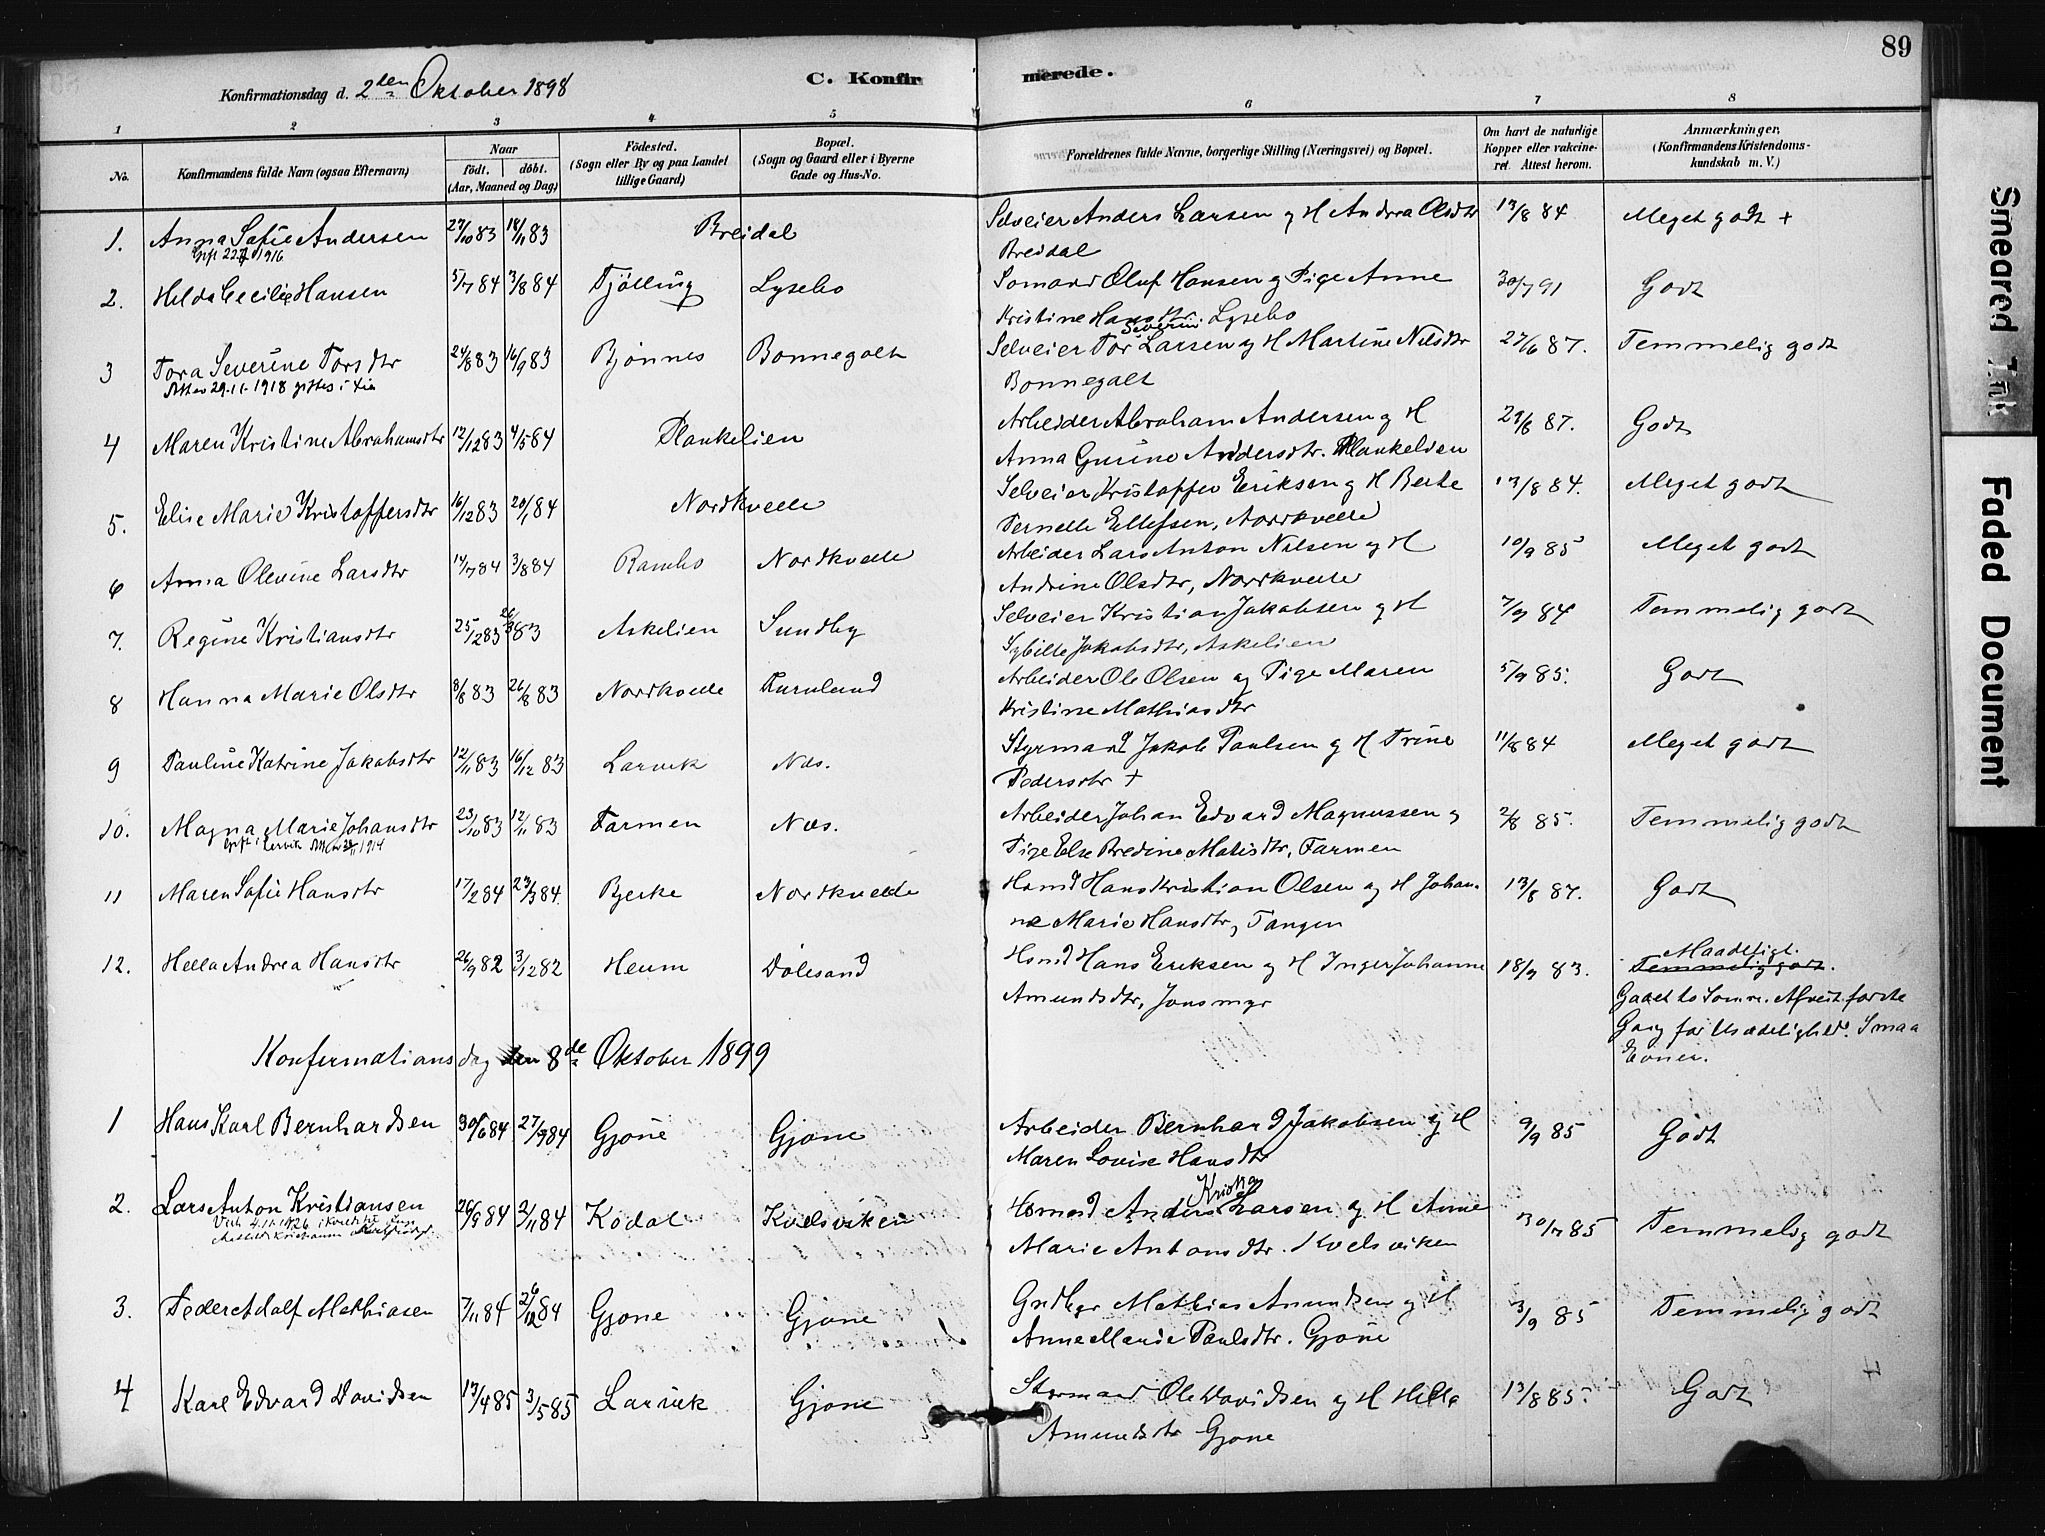 89
Konfirmationsdag d. 2den Oktober 1898
C. Konfirmerede.
1 2 3 4 5 6 7 8
No. Konfirmandens fulde Navn (ogsaa Efternavn) Naar født. døbt. (Aar, Maaned og Dag) Födested. (Sogn eller By og paa Landet tillige Gaard) Bopæl. (Sogn og Gaard eller i Byerne Gade og Hus-No. Forældrenes fulde Navne, borgerlige Stilling (Næringsvei) og Bopæl. Om havt de naturlige Kopper eller vakcineret. Attest herom. Anmærkninger, (Konfirmandens Kristendomskundskab m. V.)
1. Anna Sofie Andersen 27/10 83 18/11 83 Breidal Selveier Anders Larsen og H Andrea Olsdtr 13/8 84 Meget godt +
1916 Breidal
2. Hilda Cecilie Hansen 5/7 84 3/8 84 Tjölling Lysebo Sømand Oluf Hansen og Pige Anne 30/7 91 Godt
Kristine Hansdtr. Lysebo
3 Tora Severine Torsdtr 24/8 83 16/9 83 Bjønnes Bonnegolt Selveier Tor Severin Larsen og H Martine Nilsdtr 27/6 87. Temmelig godt
Attest 29-11-1918 giftes i Bonnegolt
4 Maren Kristine Abrahamsdtr 12/12 83 4/5 84 Plankelien Arbeider Abraham Andersen og H 29/6 87. Godt
Anna Gurine Andersdtr. Plankelien
5. Elise Marie Kristoffersdtr 16/12 83 20/1 84 Nordkvelle Selveier Kristoffer Eriksen og H Berte 13/8 84. Meget godt
Pernelle Ellefsen, Nordkvelle
6 Anna Olevine Larsdtr 14/7 84 3/8 84 Rambo Nordkvelle Arbeider Lars Anton Nilsen og H 10/9 85 Meget godt
Andrine Olsdtr, Nordkvelle
7. Regine Kristiansdtr 25/2 83 26/3 83 Askelien Sundby Selveier Kristian Jakobsen og H 7/9 84 Temmelig godt
Sybille Jakobsdtr, Askelien
8 Hanna Marie Olsdtr 8/8 83 26/8 83 Nordkvelle Furulund Arbeider Ole Olsen og Pige Maren 5/9 85. Godt
Kristine Mathiasdtr
9 Pauline Katrine Jakobsdtr 12/11 83 16/12 83 Larvik Næs. Styrmand Jakob Paulsen og H Trine 11/8 84 Meget godt
Pedersdtr +
10. Magna Marie Johansdtr 23/10 83 12/11 83 Farmen Næs. Arbeider Johan Edvard Magnussen og 2/8 85. Temmelig godt
1914 Pige Else Bredine Matisdtr, Farmen
11 Maren Sofie Hansdtr 17/2 84 23/3 84. Bjerke Nordkvelle Hsmd Hans Kristian Olsen og H Johan- 13/8 87. Godt
ne Marie Hansdtr, Tangen
12. Hella Andrea Hansdtr 26/9 82 3/12 82 Heum Dölesand Hsmd Hans Eriksen og H Inger Johanne 18/9 83. Maadeligt. Temmelig godt.
Amundsdtr, Jonsmyr Gaaet to Somre. Afvist første
Gang for Usædelighed. Smaa
Evner.
Konfirmationsdag den 8de Oktober 1899
1 Hans Karl Bernhardsen 30/6 84 27/9 84 Gjone Gjone Arbeider Bernhard Jakobsen og H 9/9 85 Godt
Maren Lovise Hansdtr
2. Lars Anton Kristiansen 26/9 84 2/11 84 Kodal Kvelsviken Hsmd Anders Larsen og H Anne 30/7 85 Temmelig godt
Marie Antonsdtr. Kvelsviken
3. Peder Adolf Mathiasen 7/11 84 26/12 84 Gjone Gjone Grdbgr Mathias Amundsen og H 3/9 85 Temmelig godt
Anne Marie Paulsdtr. Gjone
4 Karl Edvard Davidsen 13/4 85 3/5 85 Larvik Gjone Styrmand Ole Davidsen og H Hella 13/8 85. Godt
Amundsdtr Gjone
Smeared Ink
Faded Document